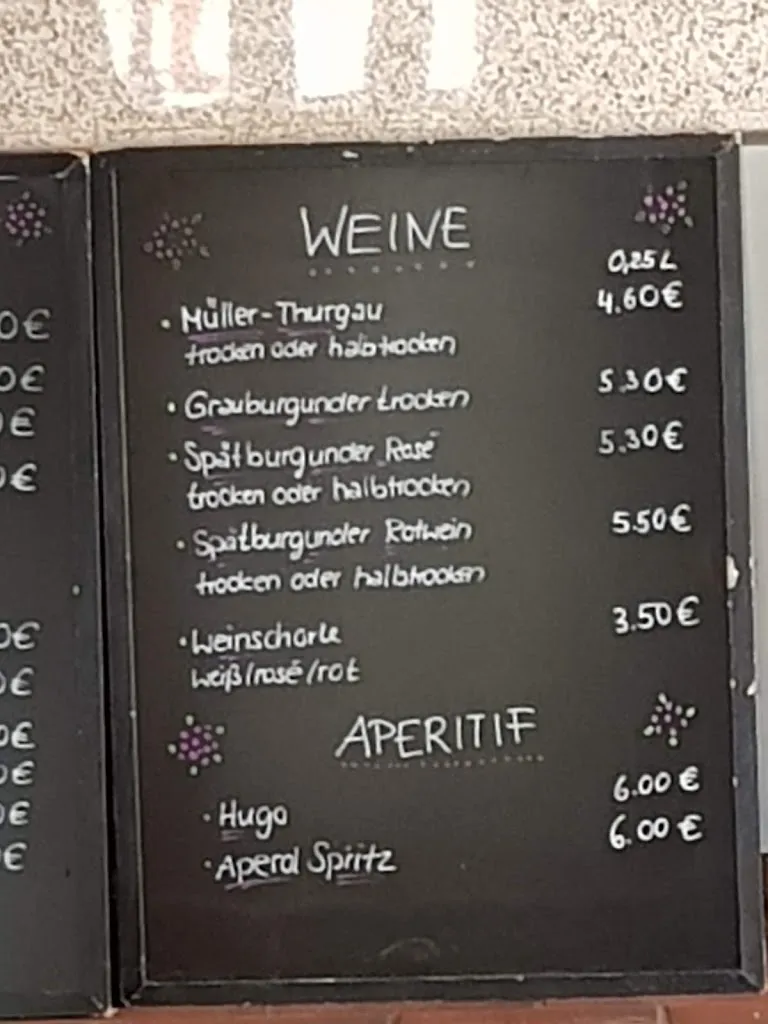 WEINE
0,25 L
• Müller-Thurgau 4.60€
trocken oder halbtrocken
• Grauburgunder trocken 5.30€
• Spätburgunder Rosé 5.30€
trocken oder halbtrocken
• Spätburgunder Rotwein 5.50€
trocken oder halbtrocken
• Weinschorle 3.50€
weiß/rosé/rot
APERITIF
• Hugo 6.00 €
• Aperol Spritz 6.00 €
0€
0€
0€
0€
0€
0€
0€
0€
€
€